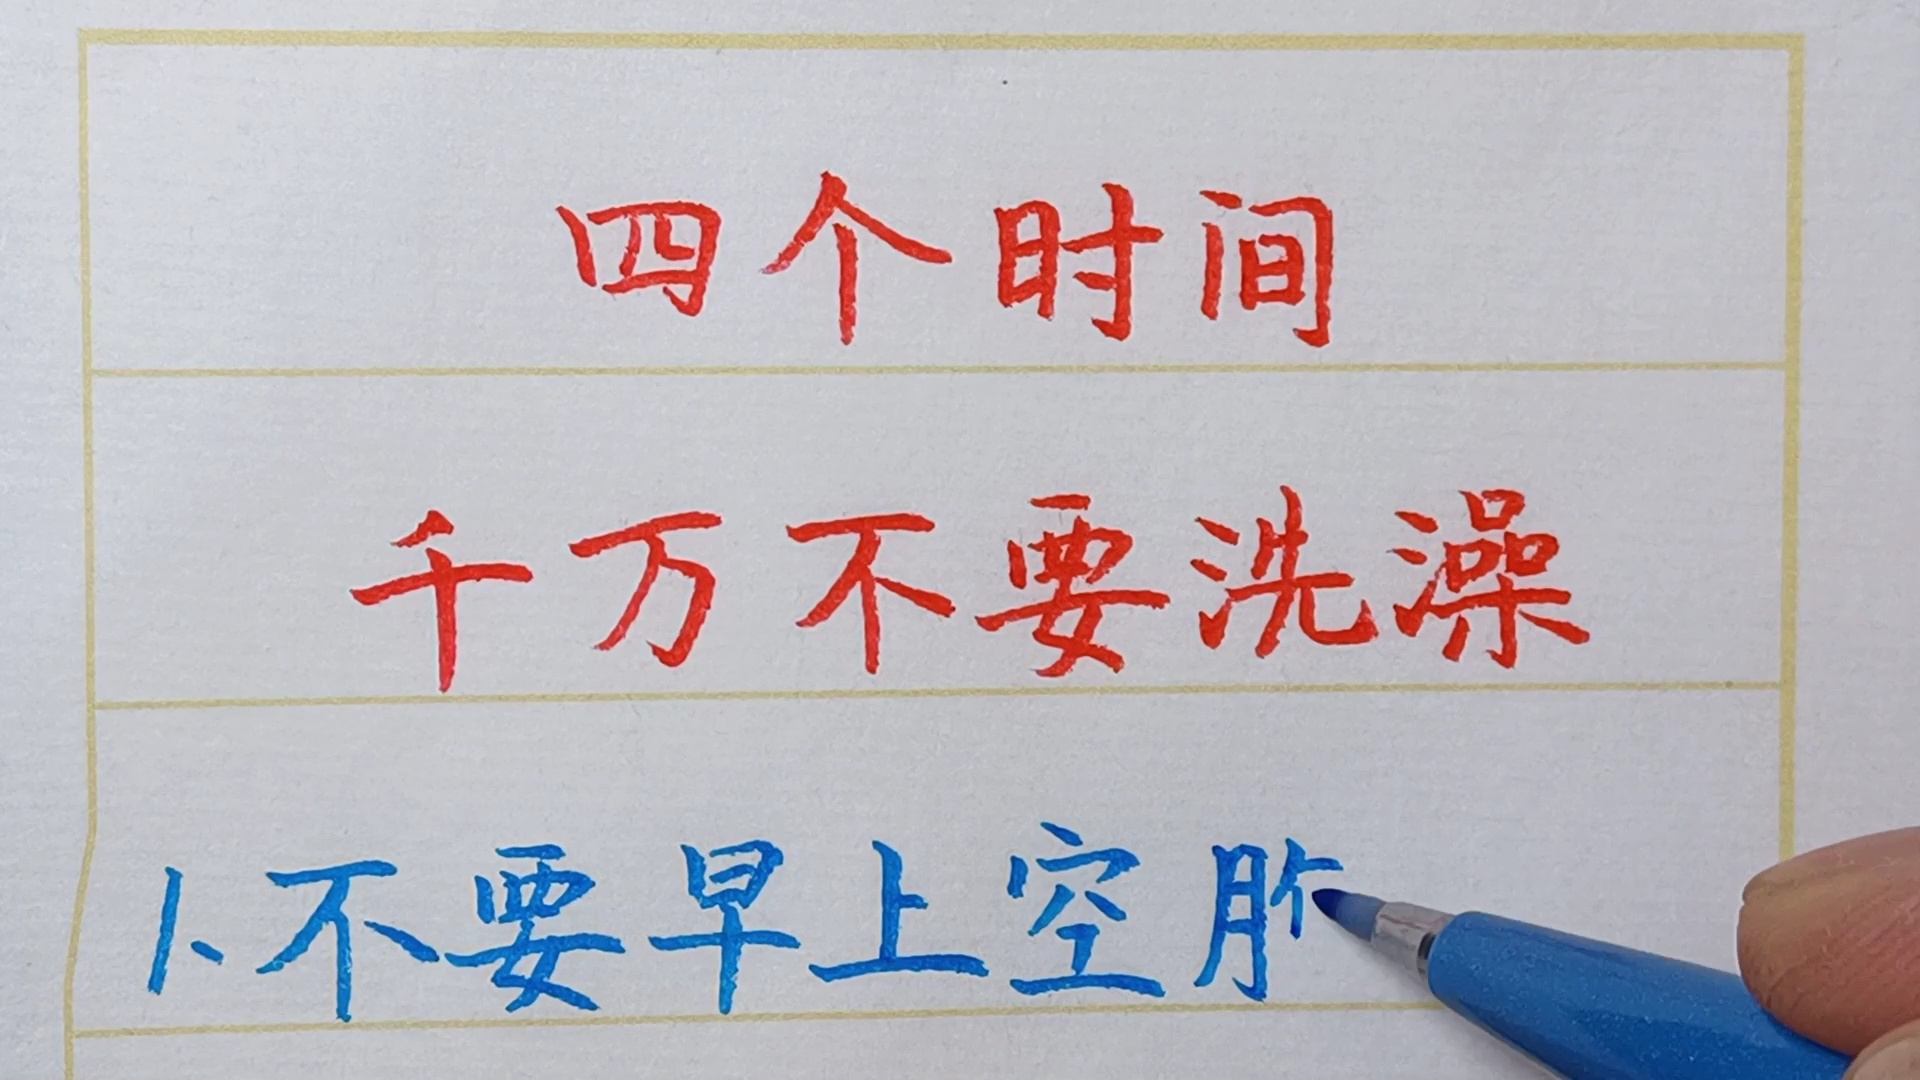 四个时间
千万不要洗澡
1、不要早上空